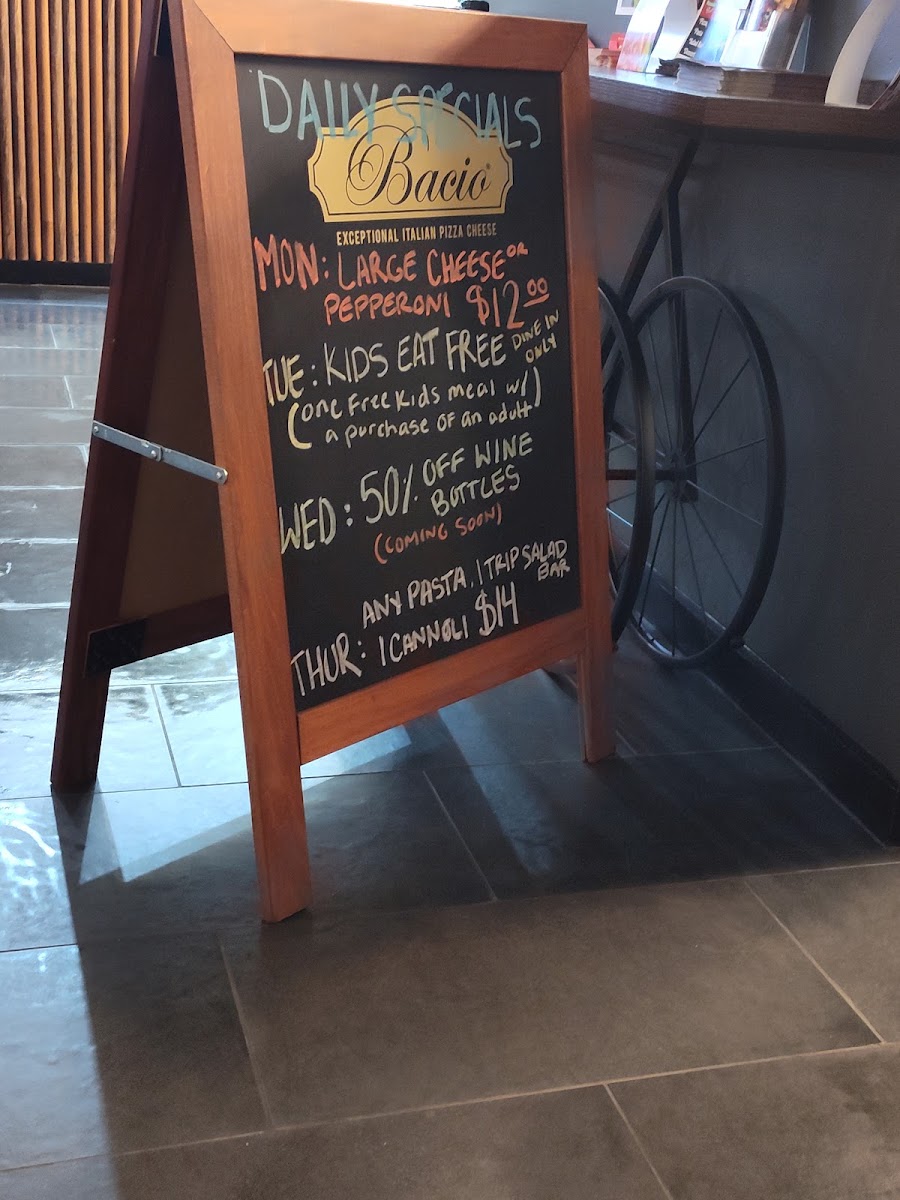 DAILY SPECIALS
Bacio
EXCEPTIONAL ITALIAN PIZZA CHEESE
MON: LARGE CHEESE OR
PEPPERONI $12.00
TUE: KIDS EAT FREE DINE IN ONLY
(one Free Kids meal w/
a purchase of an adult)
WED: 50% OFF WINE
BOTTLES
(COMING SOON)
ANY PASTA, 1 TRIP SALAD BAR
THUR: 1 CANNOLI $14